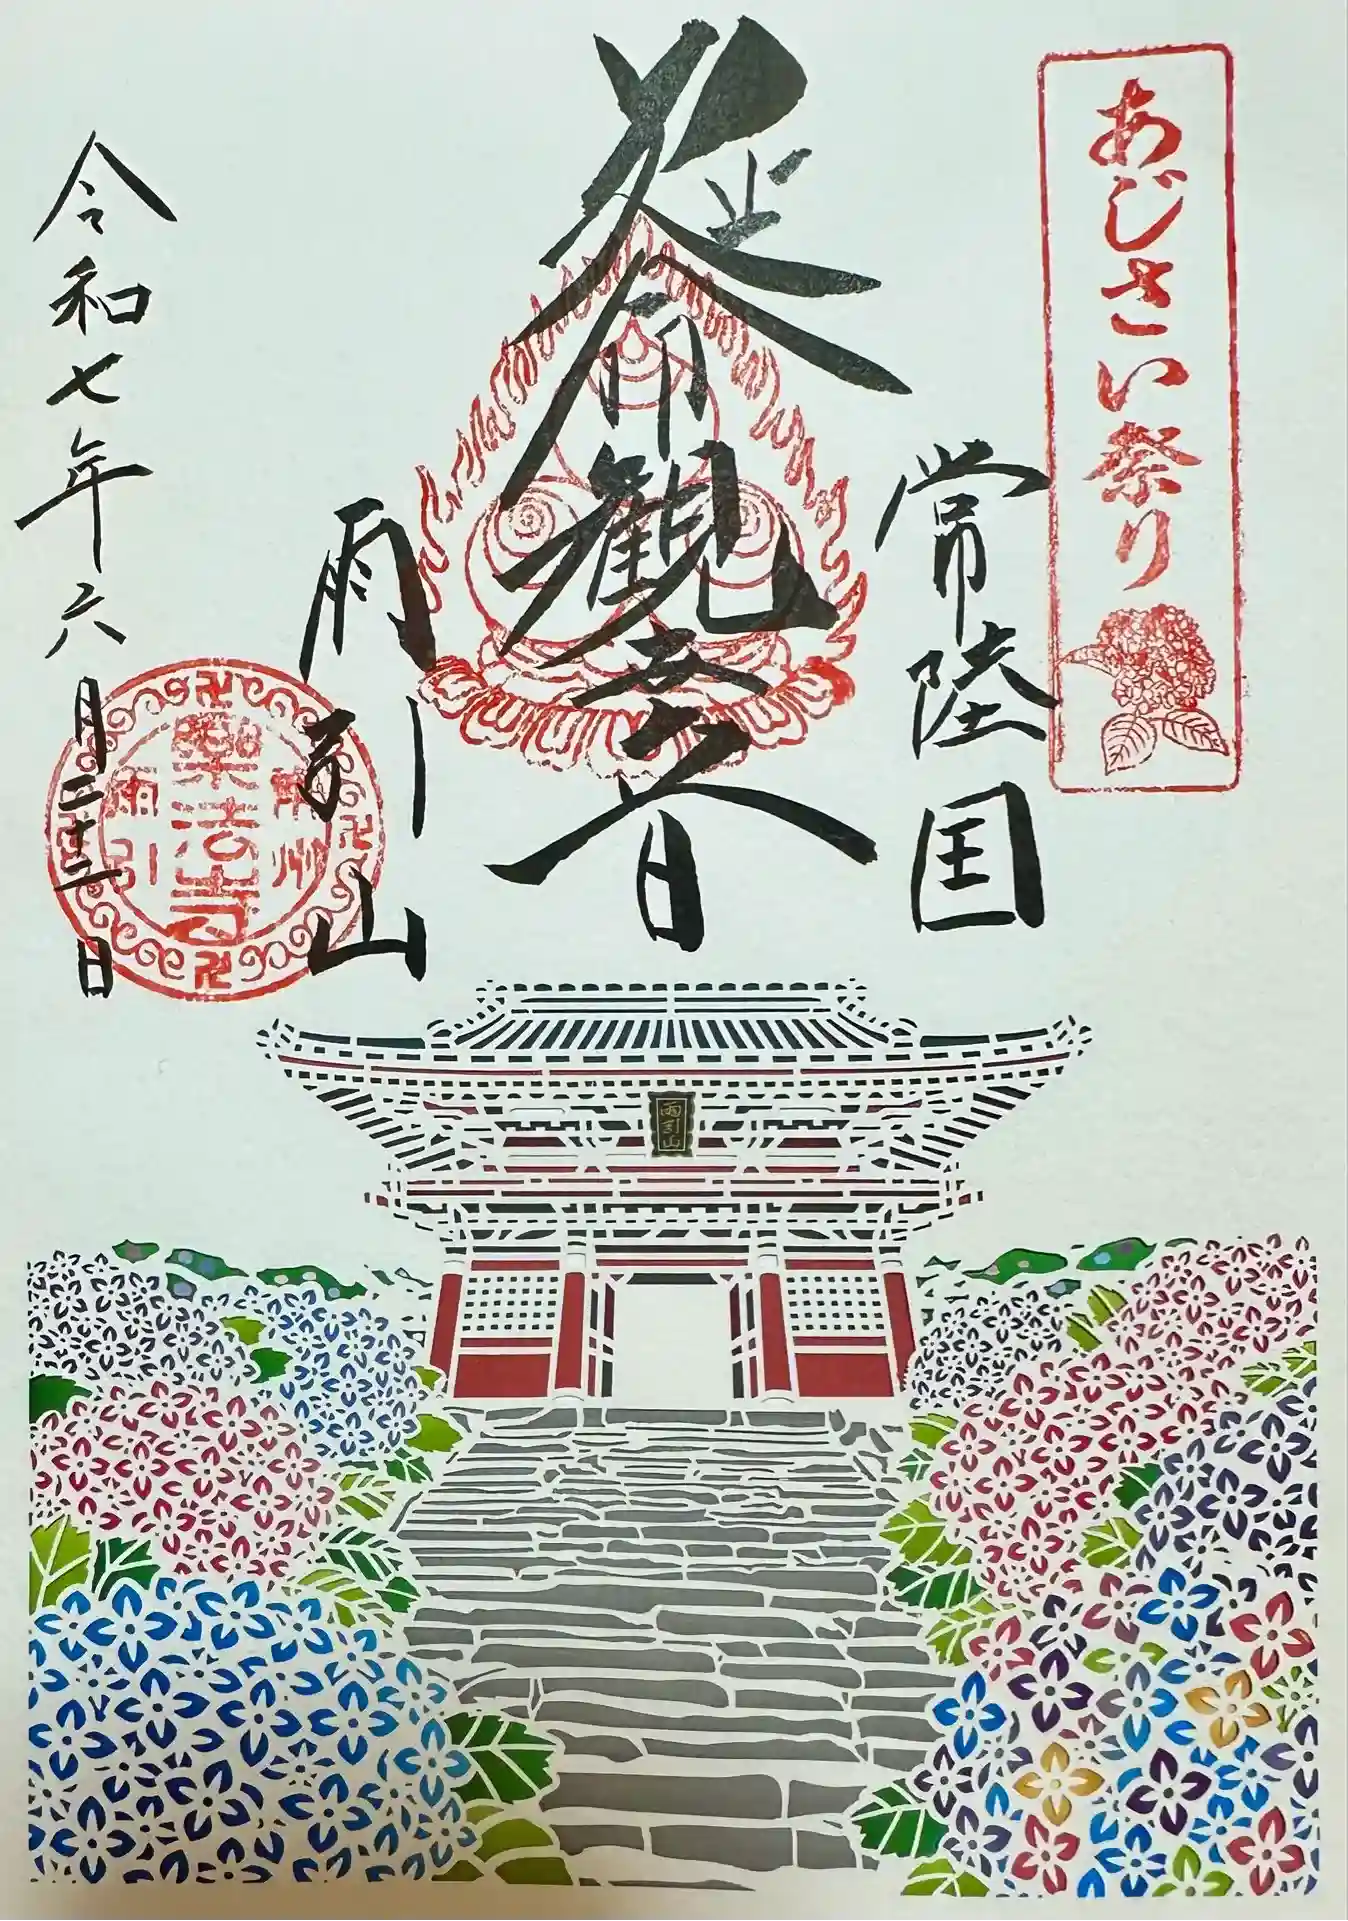 あじさい祭り
常陸国
延命観音
雨引山
令和七年六月二十二日
常州
樂法寺
雨引
雨引山